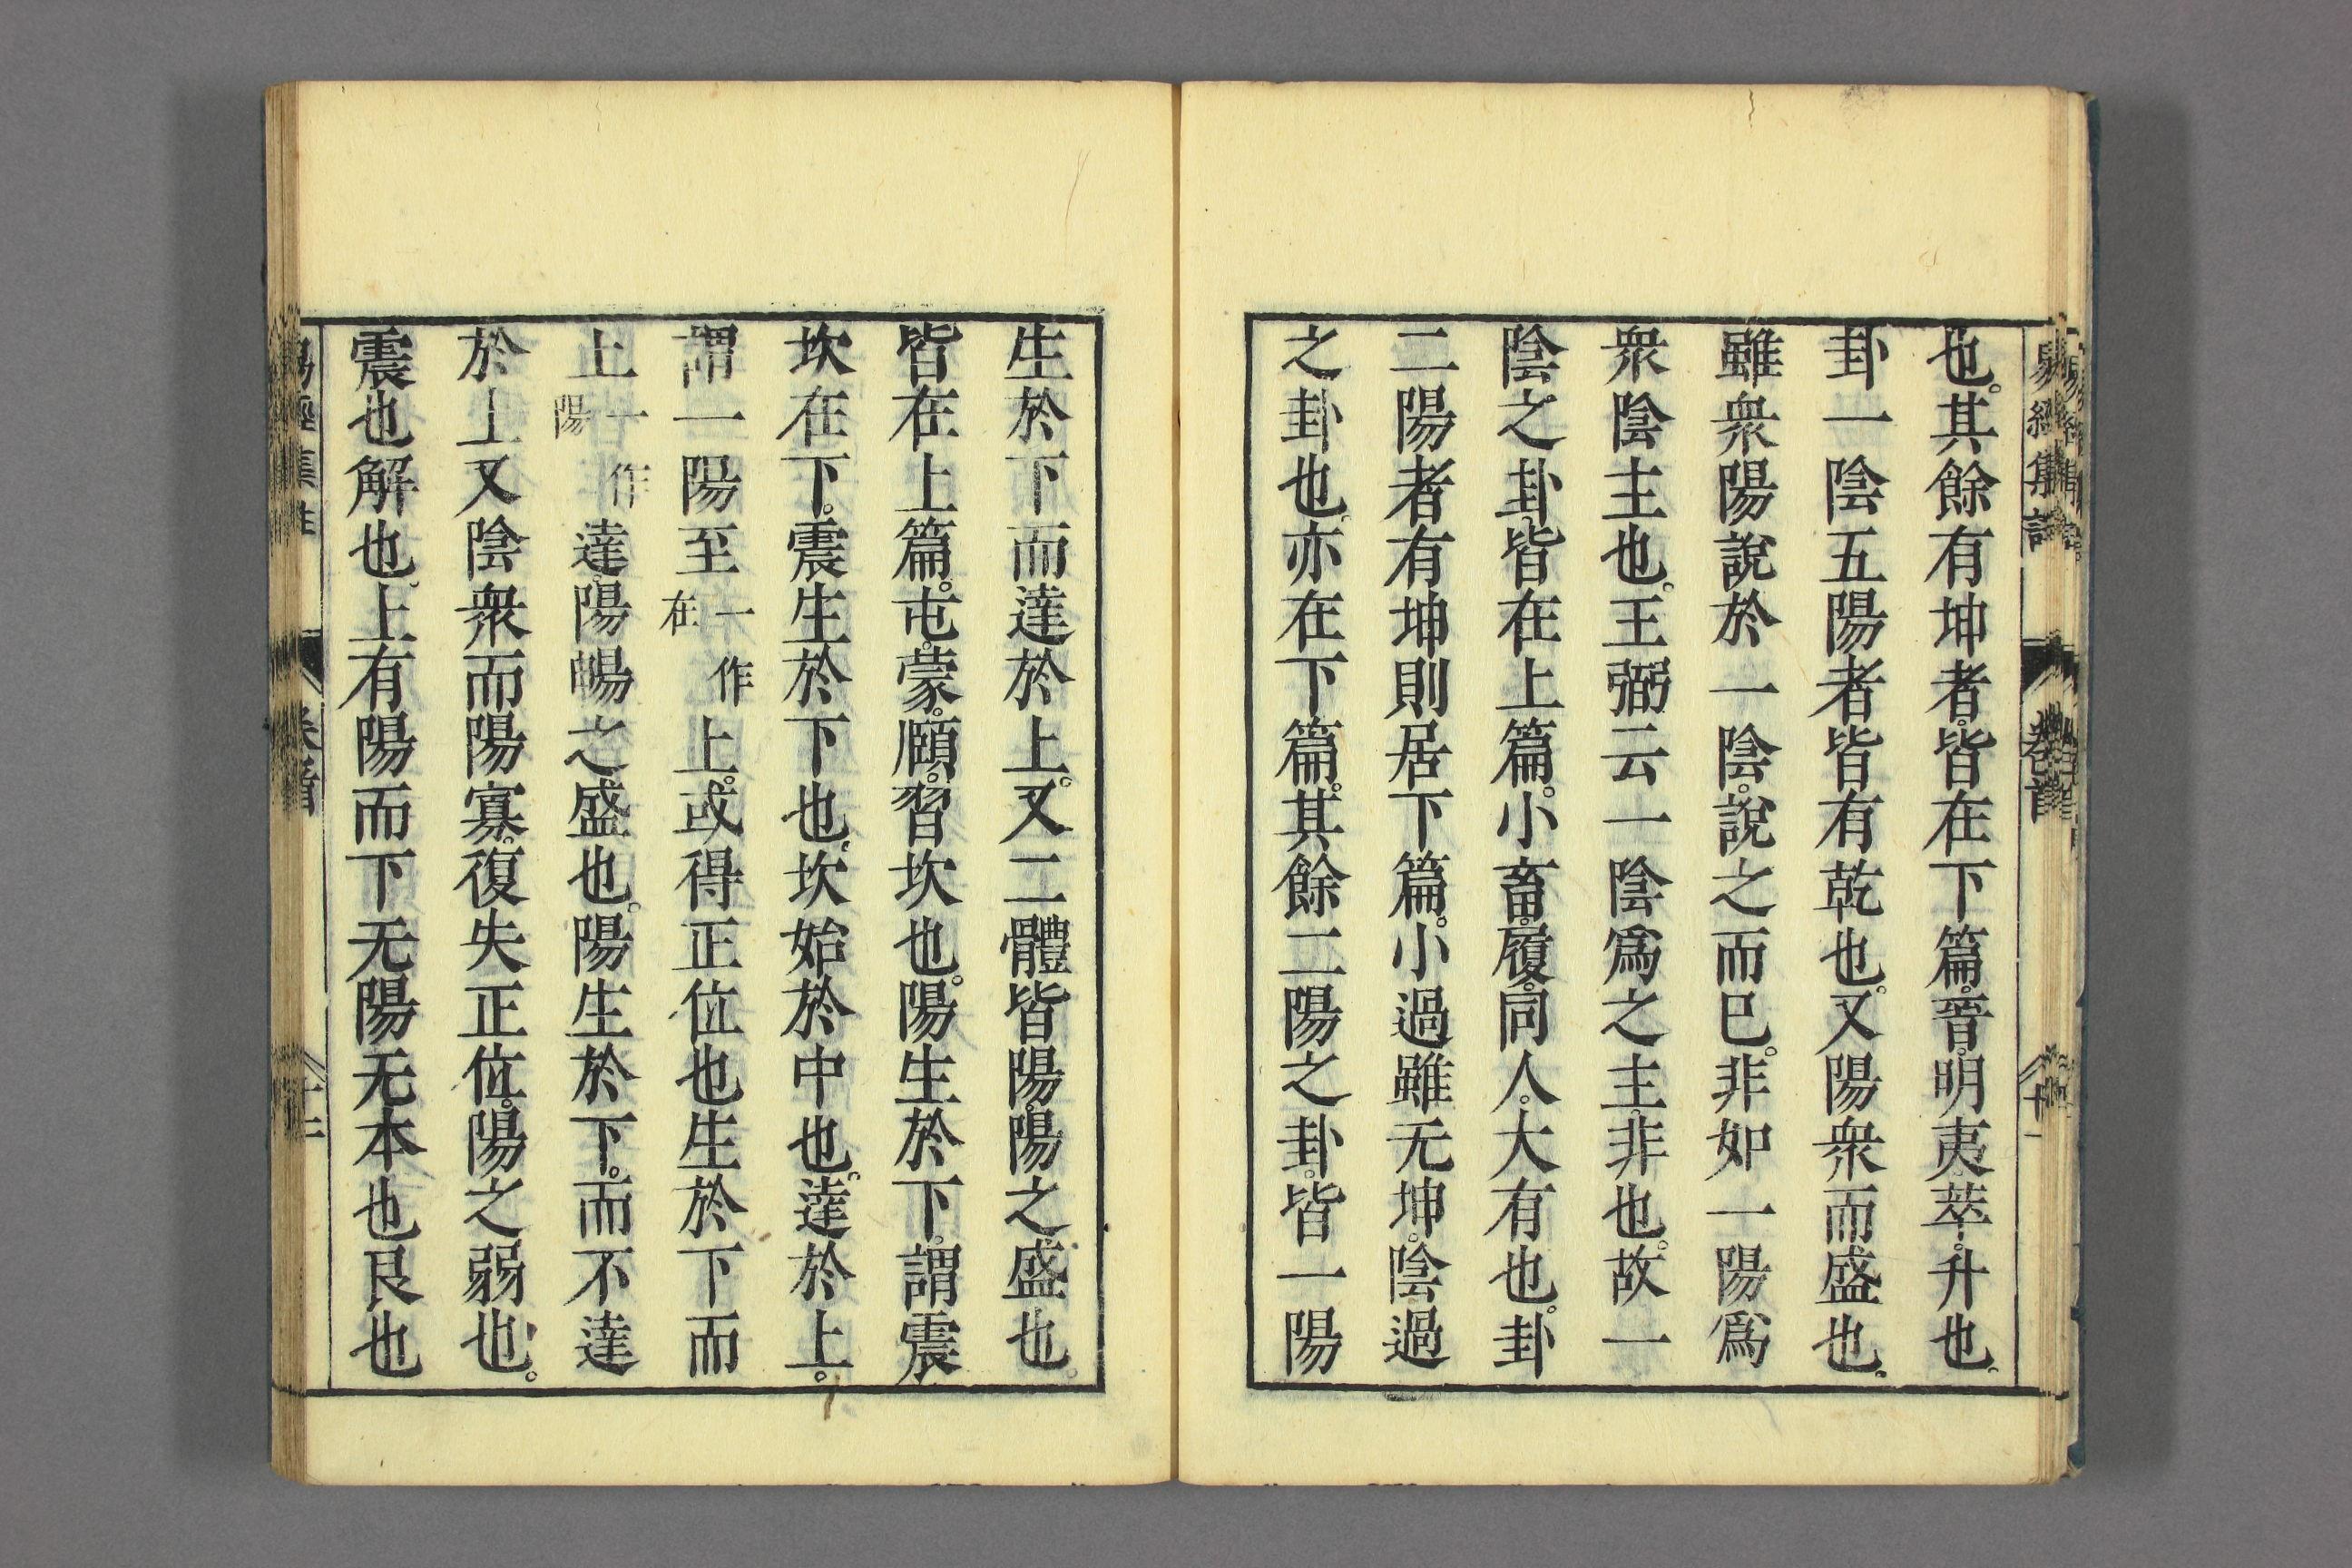 易經集註 卷首 十一
也。其餘有坤者。皆在下篇。晉。明夷萃。升也。
卦一陰五陽者皆有乾也。又陽衆而盛也。
雖衆陽說於一陰。說之而已。非如一陽爲
衆陰主也。王弼云一陰爲之主。非也。故一
陰之卦。皆在上篇。小畜。履。同人。大有也。卦
二陽者有坤則居下篇。小過雖无坤。陰過
之卦也。亦在下篇。其餘二陽之卦。皆一陽
生於下而達於上。又二體皆陽。陽之盛也。
皆在上篇。屯。蒙。頤。習坎也。陽生於下。謂震
坎在下。震生於下也。坎始於中也。達於上。
謂一陽至一作在上。或得正位也生於下而
上一作陽達。陽暢之盛也。陽生於下。而不達
於上又陰衆而陽寡。復失正位。陽之弱也。
震也解也。上有陽而下无陽无本也艮也
易經集註 卷首 十二